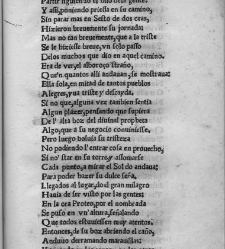 Y assi, poniendo priessa en su camino,
Sin parar mas en Sesto de dos oras,
Hizieron brevemente su jornada;
Mas no tan brevemente, que a la triste
Se le hiziesse breve, un solo passo
Delos muchos que dio en aquel camino.
Era de ver, el alboroço straño,
Quen quantos alli andavan, se mostrava:
Ella sola, en mitad de tantos pueblos
Alegres, yva triste y
Si no que, alguna vez tambien sentia
Algun plazer, pensando que supiera
De la boz del divinal propheta
Algo, que a su negocio
Pero luego bolvia su tristeza
No podiendo entrar cosa en provecho,
Si no star en su torre, y assomarse
Cada punto, a mirar el Sol do andava;
Para poder hazer su dulce seña,
Llegados al lugar, do el gran milagro
Havia de ser visto por las gentes:
En la ora Proteo, por el nombrada
Se puso en un'altura, señalando
Que todos estuviessen muy atentos:
Entonces, de su boz abriendo el caño,
Anduvo derramando maravillas: